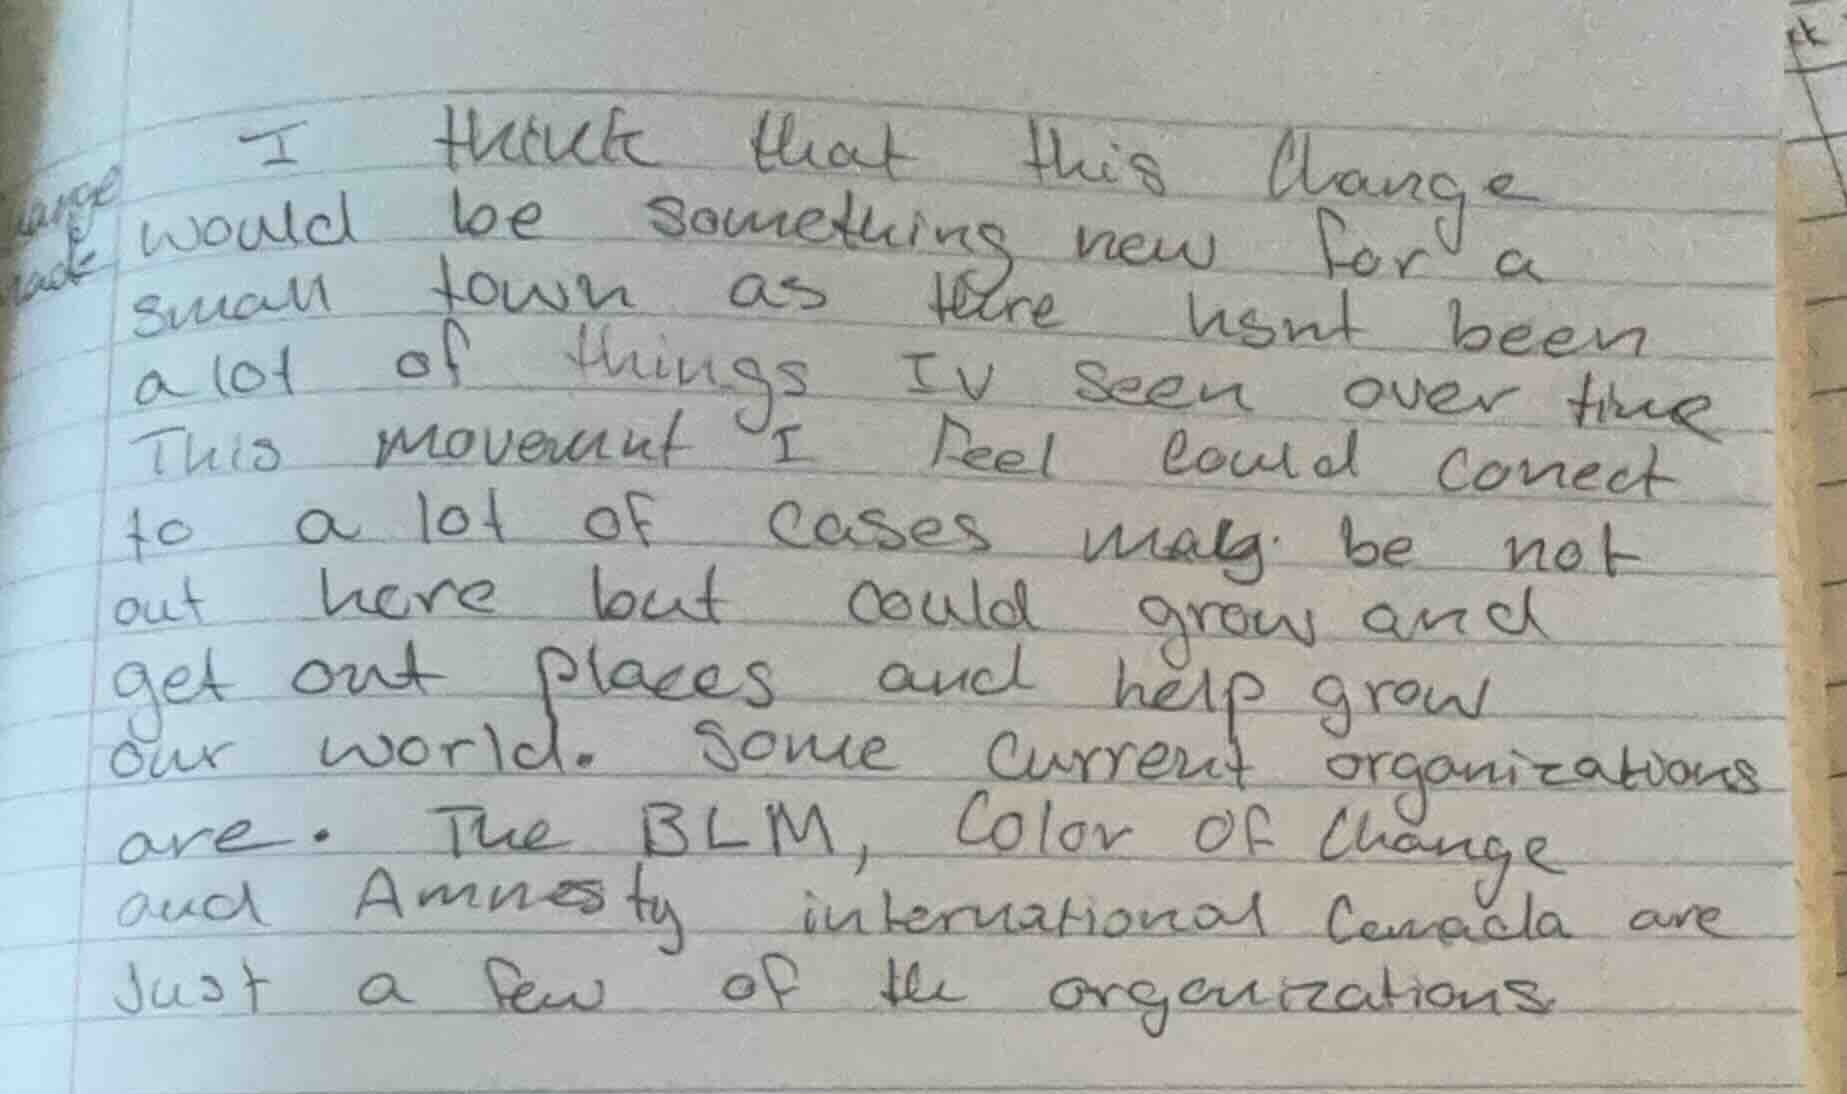 I think that this Change
would be something new for a
small town as there hsnt been
a lot of things IV seen over time
This movemunt I feel could conect
to a lot of cases may be not
out here but could grow and
get out places and help grow
our world. Some current organizations
are. The BLM, Color Of Change
and Amnesty international Canada are
Just a few of the organizations